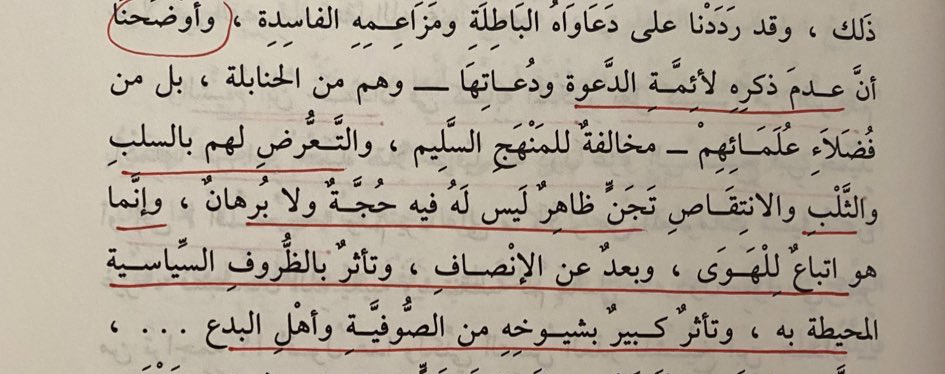 ذَلك ، وقد رَدَدْنا على دَعَاوَاهُ البَاطِلَةِ ومَزَاعِـمِهِ الفاسِدِة ، وأوضَحنَا
أنَّ عـدمَ ذكرِهِ لأئِمَّـةِ الدَّعوة ودُعـاتِهَا ـــ وهم من الحنابلة ، بل من
فُضَلَاءِ عُلَمَـائِهِمْ ـ مخالفةٌ للمَنْهَجِ السَّلِيم ، والتَّـعُّرضِ لهم بالسلبِ
والثَّلْبِ والانتِقَـاصِ تَجَنٍّ ظاهِرٌ لَيس لَهُ فيه حُجَّـةٌ ولا بُرهانٌ ، وإنَّما
هو اتباعٌ لِلْهَوَى ، وبعدٌ عن الإنْصـافِ ، وتأثرٌ بالظُّروفِ السِّياسـية
المحيطة به ، وتأثرٌ كـبيرٌ بشيـوخِهِ من الصُّوفيَّـةِ وأهْلِ البدع . . . ،